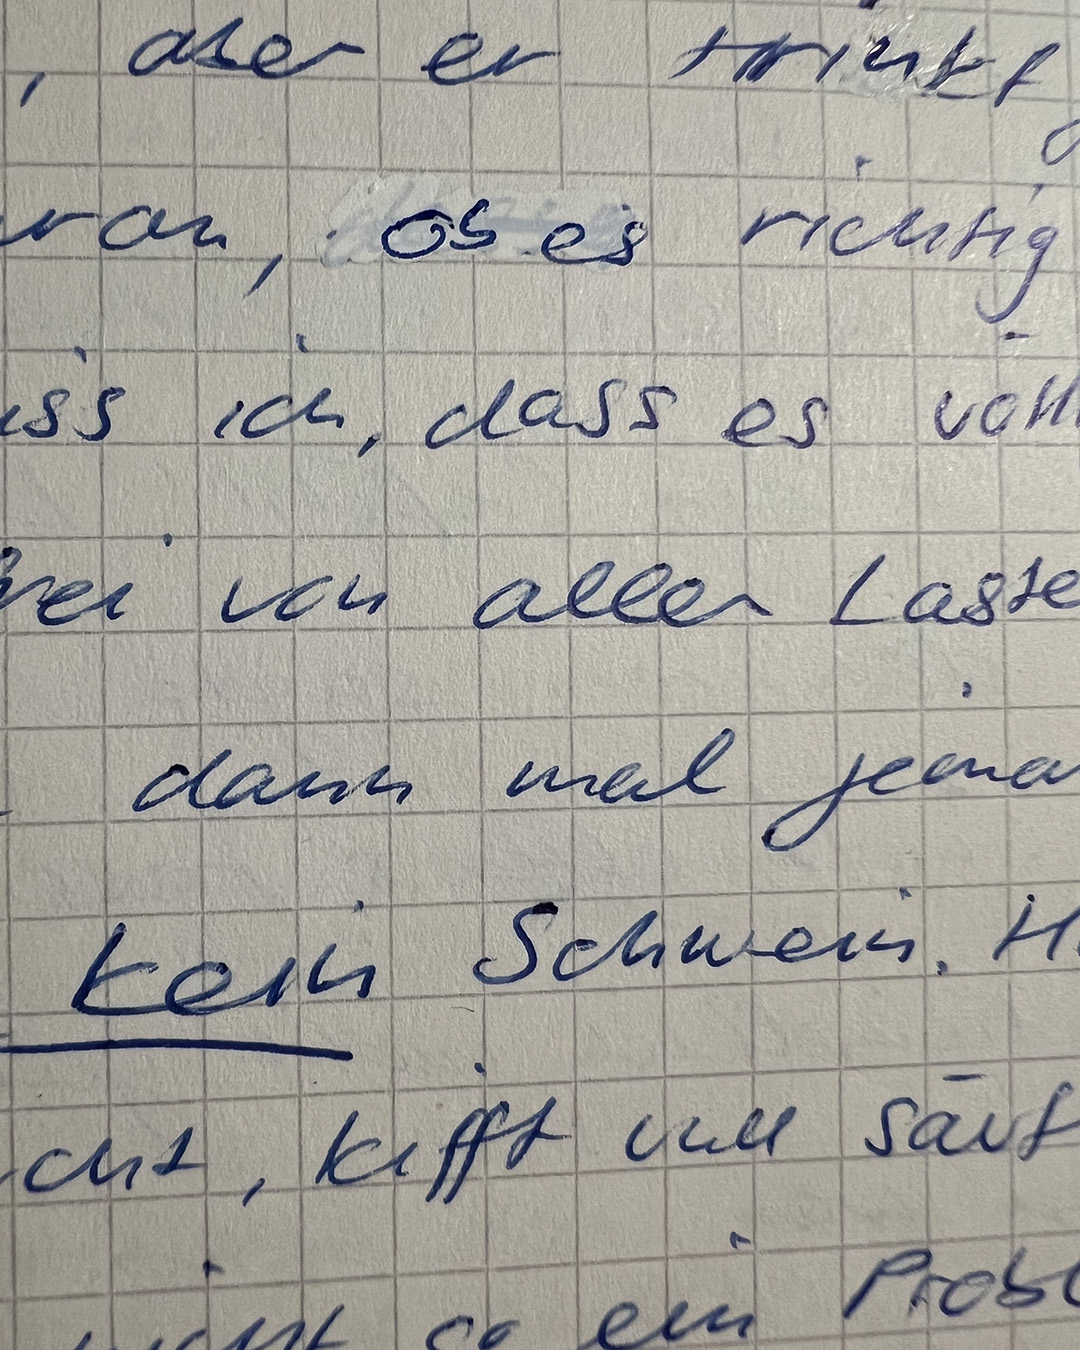 , aber er trinkt
ran, ob es richtig
iss ich, dass es völl
frei von allen Laste
dann mal jema
kein Schwein. H
cht, kifft und säuf
nicht so ein Probl